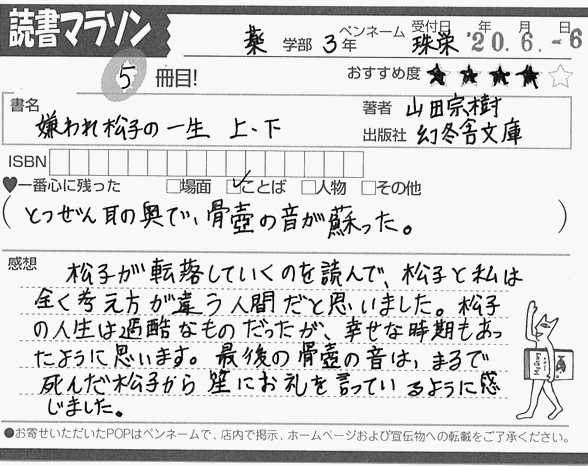 読書マラソン
薬 学部 3年 ペンネーム 珠栄 受付日 年 月 日 '20.6.-6
5 冊目! おすすめ度 ★★★★☆
書名 嫌われ松子の一生 上、下
著者 山田宗樹
出版社 幻冬舎文庫
ISBN
♥一番心に残った □場面 ☑ことば □人物 □その他
(とつぜん耳の奥で、骨壺の音が蘇った。)
感想
松子が転落していくのを読んで、松子と私は
全く考え方が違う人間だと思いました。松子
の人生は過酷なものだったが、幸せな時期もあっ
たように思います。最後の骨壺の音は、まるで
死んだ松子から笙にお礼を言っているように感
じました。
●お寄せいただいたPOPはペンネームで、店内で掲示、ホームページおよび宣伝物への転載をご了承ください。